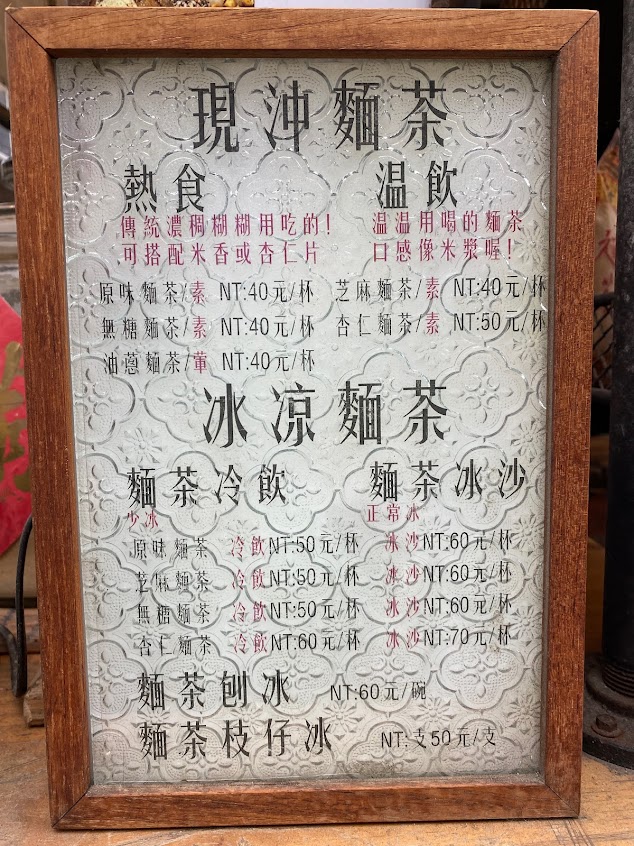 現沖麵茶
熱食
傳統濃稠糊糊用吃的!
可搭配米香或杏仁片
原味麵茶/素 NT:40元/杯
無糖麵茶/素 NT:40元/杯
油蔥麵茶/葷 NT:40元/杯
温飲
温温用喝的麵茶
口感像米漿喔!
芝麻麵茶/素 NT:40元/杯
杏仁麵茶/素 NT:50元/杯
冰凉麵茶
麵茶冷飲 麵茶冰沙
少冰 正常冰
原味麵茶 冷飲NT:50元/杯 冰沙NT:60元/杯
芝麻麵茶 冷飲NT:50元/杯 冰沙NT:60元/杯
無糖麵茶 冷飲NT:50元/杯 冰沙NT:60元/杯
杏仁麵茶 冷飲NT:60元/杯 冰沙NT:70元/杯
麵茶刨冰 NT:60元/碗
麵茶枝仔冰 NT:支50元/支